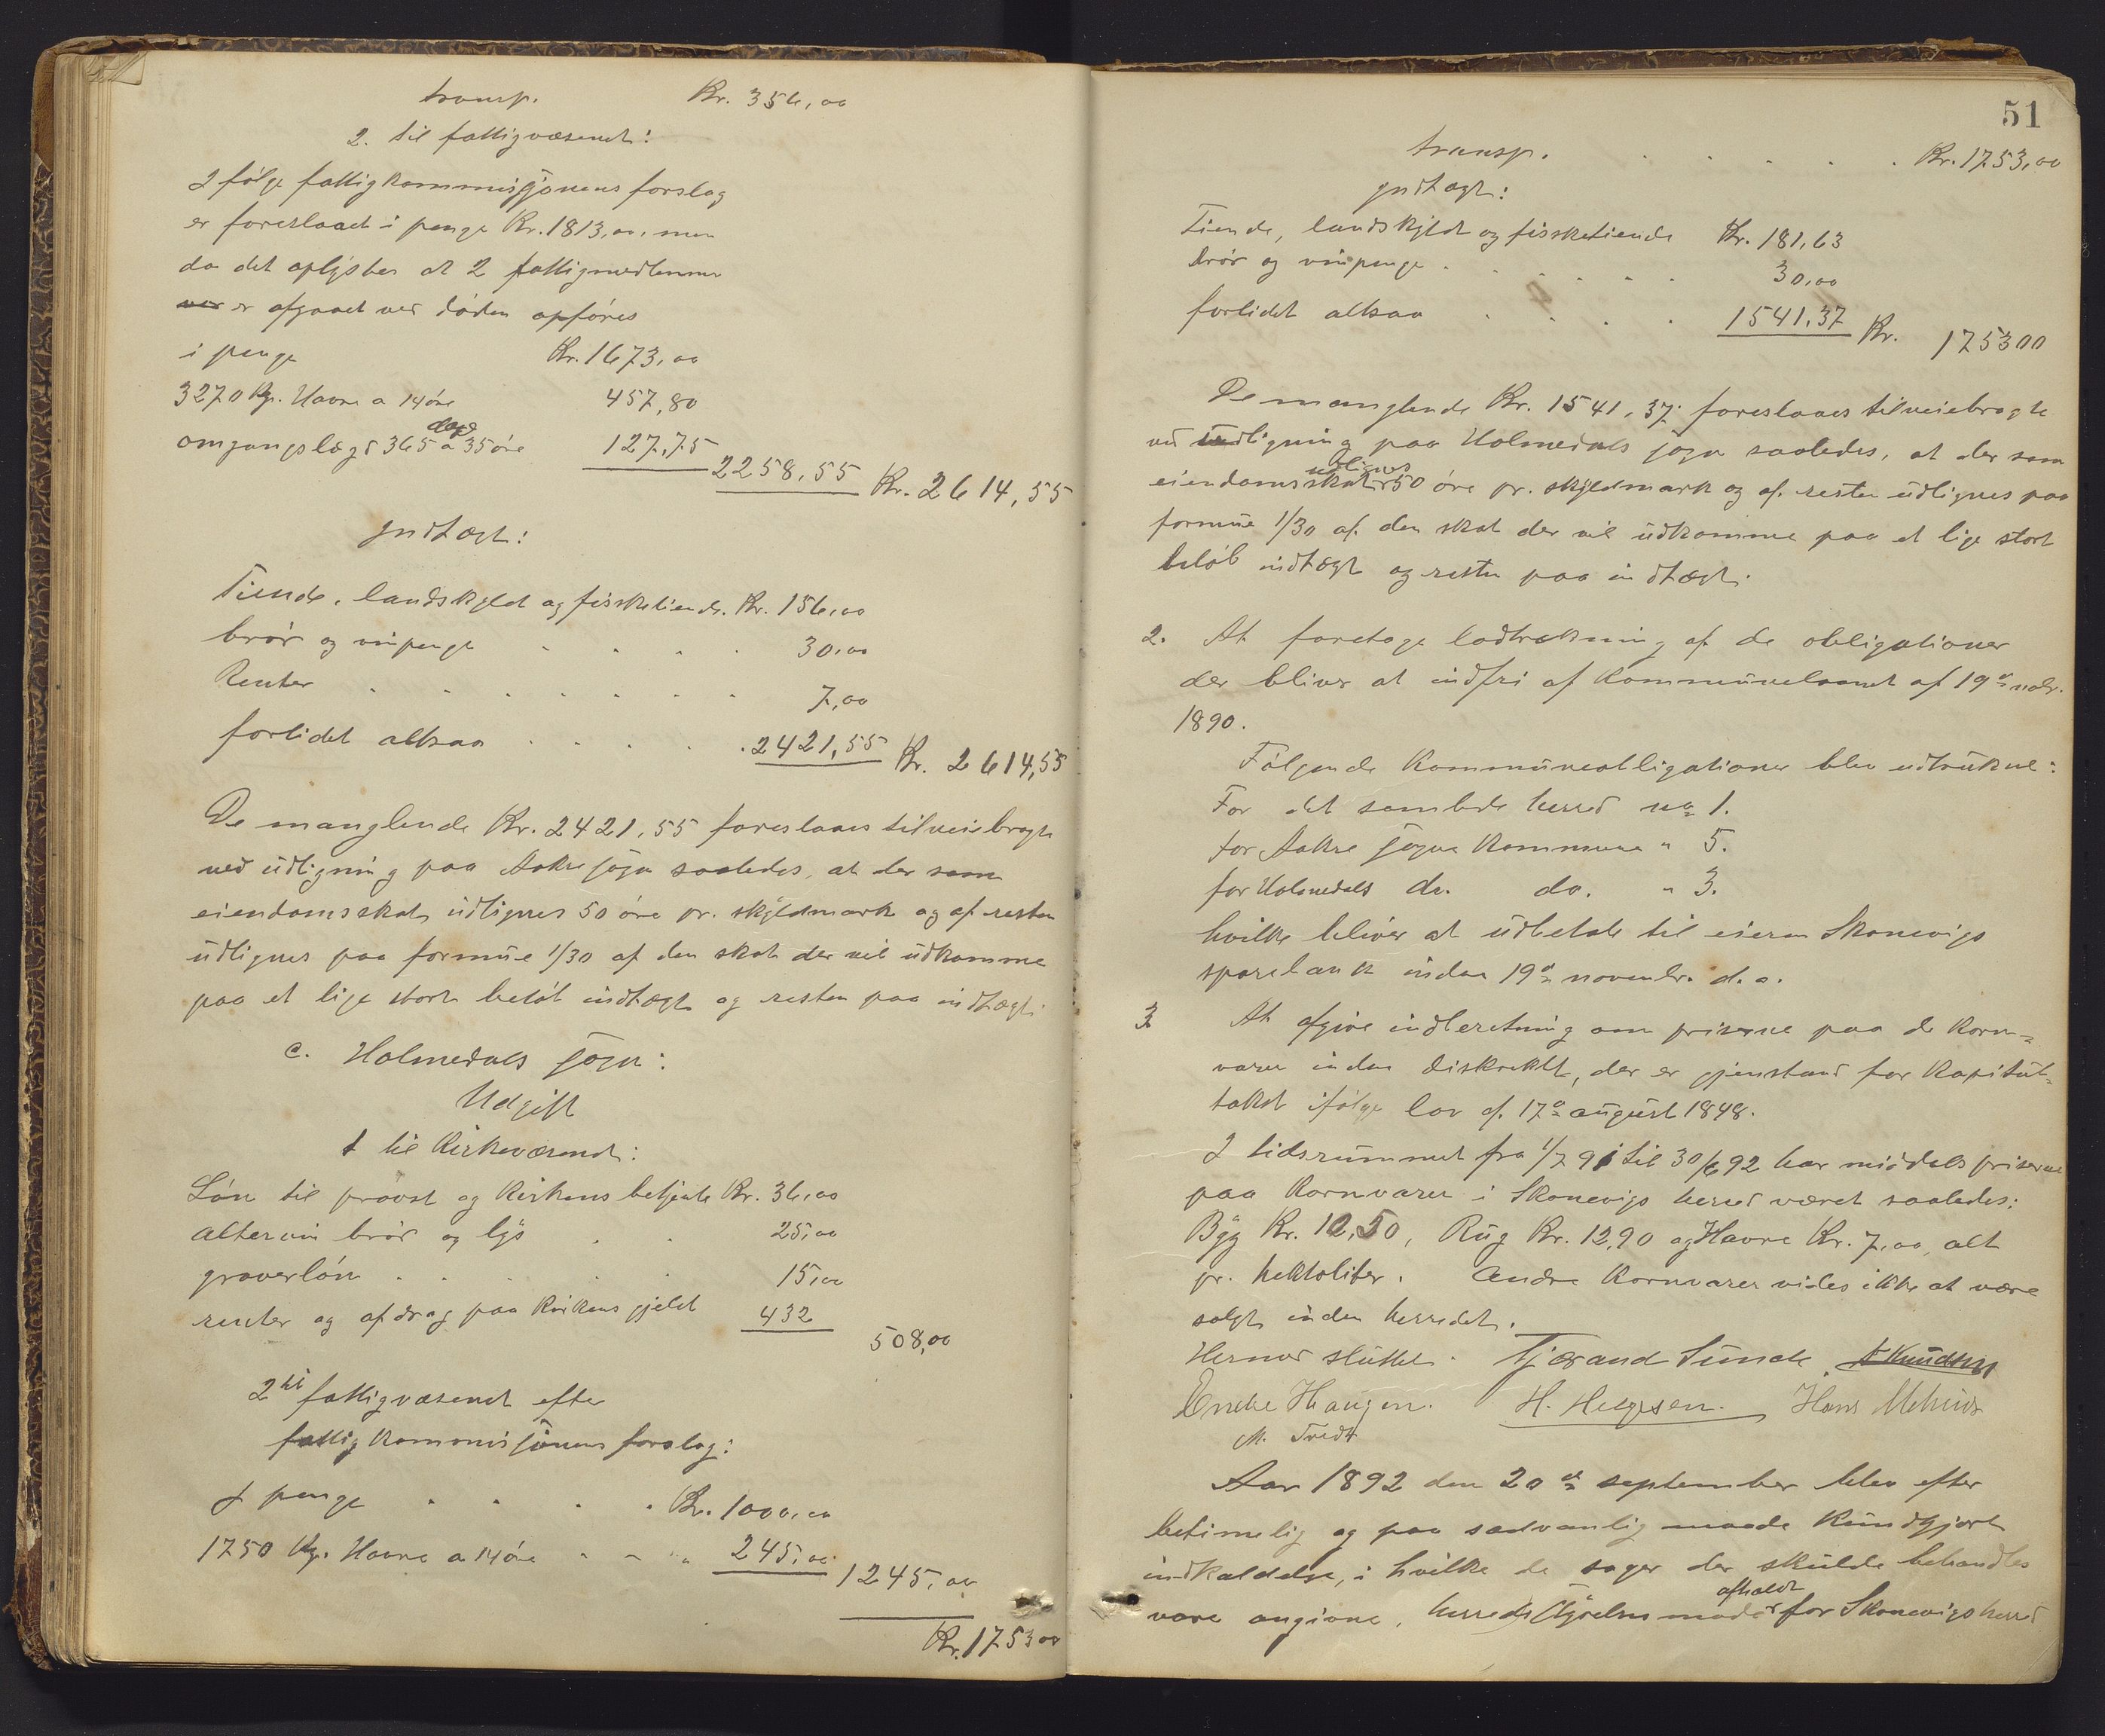 transp. Kr. 356,00
2. til fattigvæsenet:
I følge fattigkommissjonens forslag
er foreslaaet i penge Kr. 1813,00, men
da det oplyses at 2 fattigmedlemmer
var er afgaaet ved døden opføres
i penge Kr. 1673,00
3270 Kg. Havre a 14 øre 457,80
omgangslægd 365 dage a 35 øre 127,75
2258,55 Kr. 2614,55
Indtægt:
Tiende, landskyld og fisketiende. Kr. 156,00
brød og vinpenge 30,00
Renter 7,00
forlidet altsaa 2421,55 Kr. 2614,55
De manglende Kr. 2421,55 foreslaaes tilveiebragte
ved udligning paa Aakre sogn saaledes, at der som
eiendomsskat udlignes 50 øre pr. skyldmark og af resten
udlignes paa formue 1/30 af den skat der vil udkomme
paa et lige stort beløb indtægt og resten paa indtægt.
c. Holmedals sogn:
Udgift
1 til Kirkevæsenet:
Løn til provst og Kirkens betjente Kr. 36,00
altervin brød og lys 25,00
graverløn 15,00
renter og afdrag paa Kirkens gjeld 432
508,00
2 til fattigvæsenet efter
fattigkommissjonens forslag:
I penge Kr. 1000,00
1750 Kg. Havre a 14 øre 245,00
1245,00
Kr. 1753 00
51
transp. Kr. 1753,00
Indtægt:
Tiende, landskyld og fissketiende Kr. 181,63
brød og vinpenge 30,00
forlidet altsaa 1541,37 Kr. 1753 00
De manglende Kr. 1541,37 foreslaaes tilveiebragte
ved udligning paa Holmedals sogn saaledes, at der som
eiendomsskat udlignes 50 øre pr. skyldmark og af resten udlignes paa
formue 1/30 af den skat der vil udkomme paa et lige stort
beløb indtægt og resten paa indtægt.
2. At foretage lodtrækning af de obligationer
der bliver at indfri af Kommunelaanet af 19de novbr.
1890.
Følgende Kommuneobligationer blev udtrukne:
For det samlede herred no 1.
for Aakre sogns Kommune " 5.
for Holmedals do. do. " 3.
hvilke bliver at udbetale til eieren Skonevigs
sparebank inden 19de novenbr. d.a.
3 At afgive indberetning om priserne paa de korn-
varer inden distriktet, der er gjenstand for Kapitul-
takst ifølge lov af 17de august 1848.
I tidsrummet fra 1/7 91 til 30/6 92 har middelspriserne
paa Kornvarer i Skonevigs herred været saaledes:
Byg Kr. 10,50, Rug Kr. 12,90 og Havre Kr. 7,00, alt
pr. hektoliter. Andre Kornvarer vides ikke at være
solgt inden herredet.
Hermed sluttet. Tjærand Sunde A Knudsen
Endre Haugen. H. Helgesen. Hans Mehus
M. Tredt
Aar 1892 den 20de september blev efter
betimelig og paa sædvanlig maade kundgjort
indkaldelse, i hvilke de sager der skulde behandles
vare angivne, herredsstyrelsesmøde afholdt for Skonevigs herred